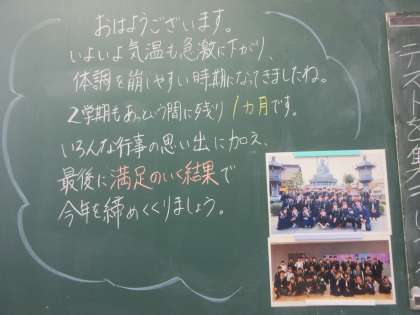 おはようございます。
いよいよ気温も急激に下がり、
体調を崩しやすい時期になってきましたね。
2学期もあっという間に残り1ヵ月です。
いろんな行事の思い出に加え、
最後に満足のいく結果で
今年を締めくくりましょう。